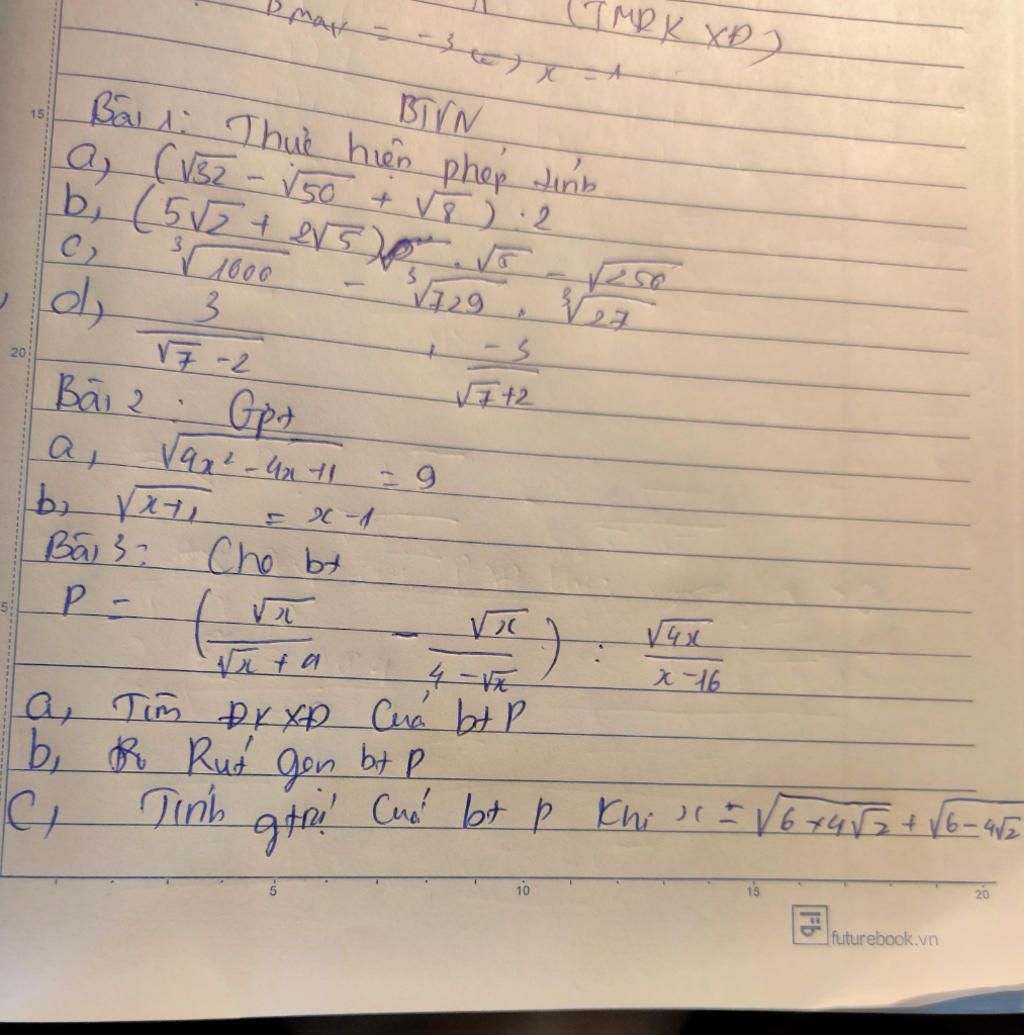 Pmax = -3 (=) x = 1 (TMĐK XĐ)
BTVN
15
Bài 1: Thực hiện phép tính
a, (√32 - √50 + √8) . 2
b, (5√2 + 2√5) . √5 - √250
c, ³√1000 - ³√729 . ³√27
d, 3/(√7 - 2) + -3/(√7+2)
20
Bài 2 : Gpt
a, √(4x² - 4x + 1) = 9
b, √(x+1) = x - 1
Bài 3: Cho bt
5
P = (√x/(√x + 4) - √x/(4 - √x)) : √4x/(x-16)
a, Tìm ĐKXĐ Của bt P
b, Rút gọn bt P
C, Tính gtrị Của bt P Khi x = √(6+4√2) + √(6-4√2)
5 10 15 20
futurebook.vn